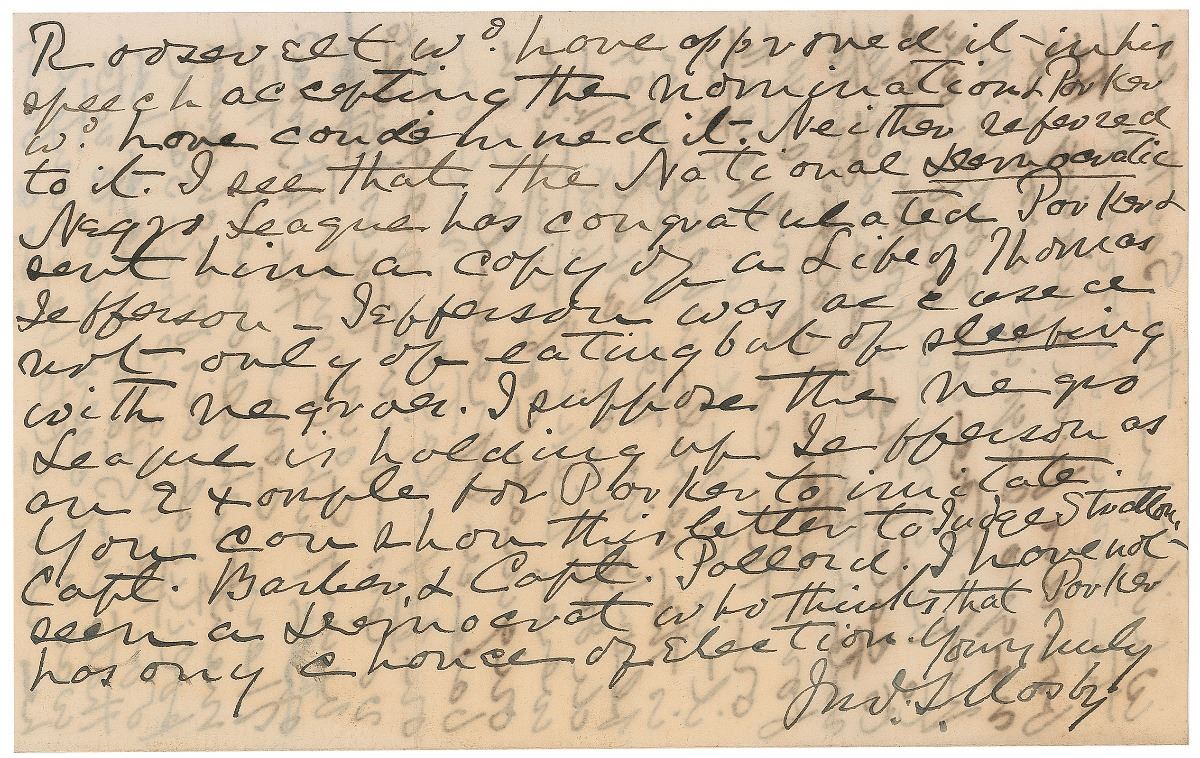 Roosevelt wd. have approved it - in his
speech accepting the nomination & Parker
wd. have condemned it. Neither referred
to it. I see that the National Democratic
Negro League has congratulated Parker &
sent him a copy of a Life of Thomas
Jefferson - Jefferson was accused
not only of eating but of sleeping
with negroes. I suppose the negro
League is holding up Jefferson as
an Example for Parker to imitate.
You can show this letter to Judge Stratton,
Capt. Barber, & Capt. Pollard. I have not
seen a Democrat who thinks that Parker
has any chance of Election. Yours Truly
Jno. S. Mosby